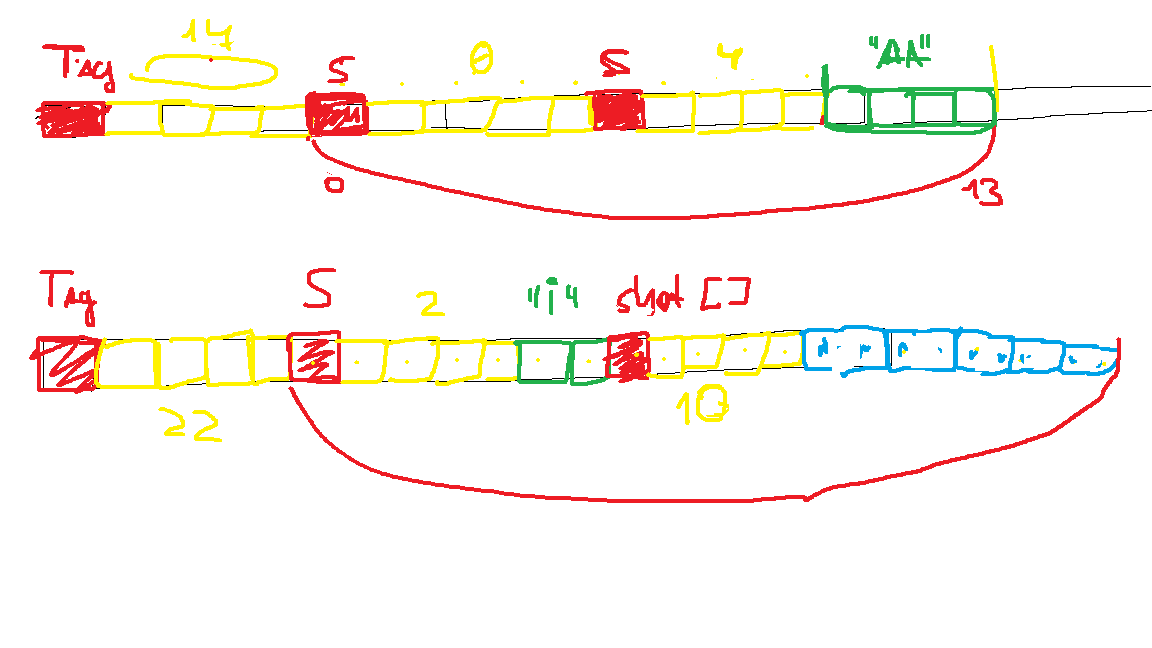 14
Tag S 0 S 4 "AA"
0 13
Tag S 2 "i" short []
22 10